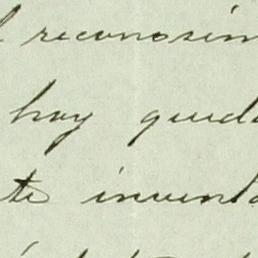 l reconosim
hoy queda
te inventa